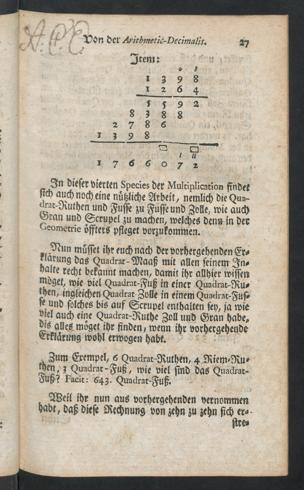 A. C. E.
Von der Arithmetic-Decimalis. 27
Item:
0 I
1 3 9 8
1 2 6 4
5 5 9 2
8 3 8 8
2 7 8 6
1 3 9 8
I II
1 7 6 6 0 7 2
In dieser vierten Species der Multiplication findet
sich auch noch eine nützliche Arbeit, nemlich die Qua-
drat-Ruthen und Fusse zu Fusse und Zolle, wie auch
Gran und Scrupel zu machen, welches denn in der
Geometrie öffters pfleget vorzukommen.
Nun müsset ihr euch nach der vorhergehenden Er-
klärung das Quadrat-Maaß mit allen seinem In-
halte recht bekannt machen, damit ihr allhier wissen
möget, wie viel Quadrat-Fuß in einer Quadrat-Ru-
then, ingleichen Quadrat Zolle in einem Quadrat-Fus-
se und solches bis auf Scrupel enthalten sey, ja wie
viel auch eine Quadrat-Ruthe Zoll und Gran habe,
dis alles möget ihr finden, wenn ihr vorhergehende
Erklärung wohl erwogen habt.
Zum Exempel, 6 Quadrat-Ruthen, 4 Riem-Ru-
then, 3 Quadrat-Fuß, wie viel sind das Quadrat-
Fuß? Facit: 643. Quadrat-Fuß.
Weil ihr nun aus vorhergehenden vernommen
habt, daß diese Rechnung von zehn zu zehn sich er-
stre-